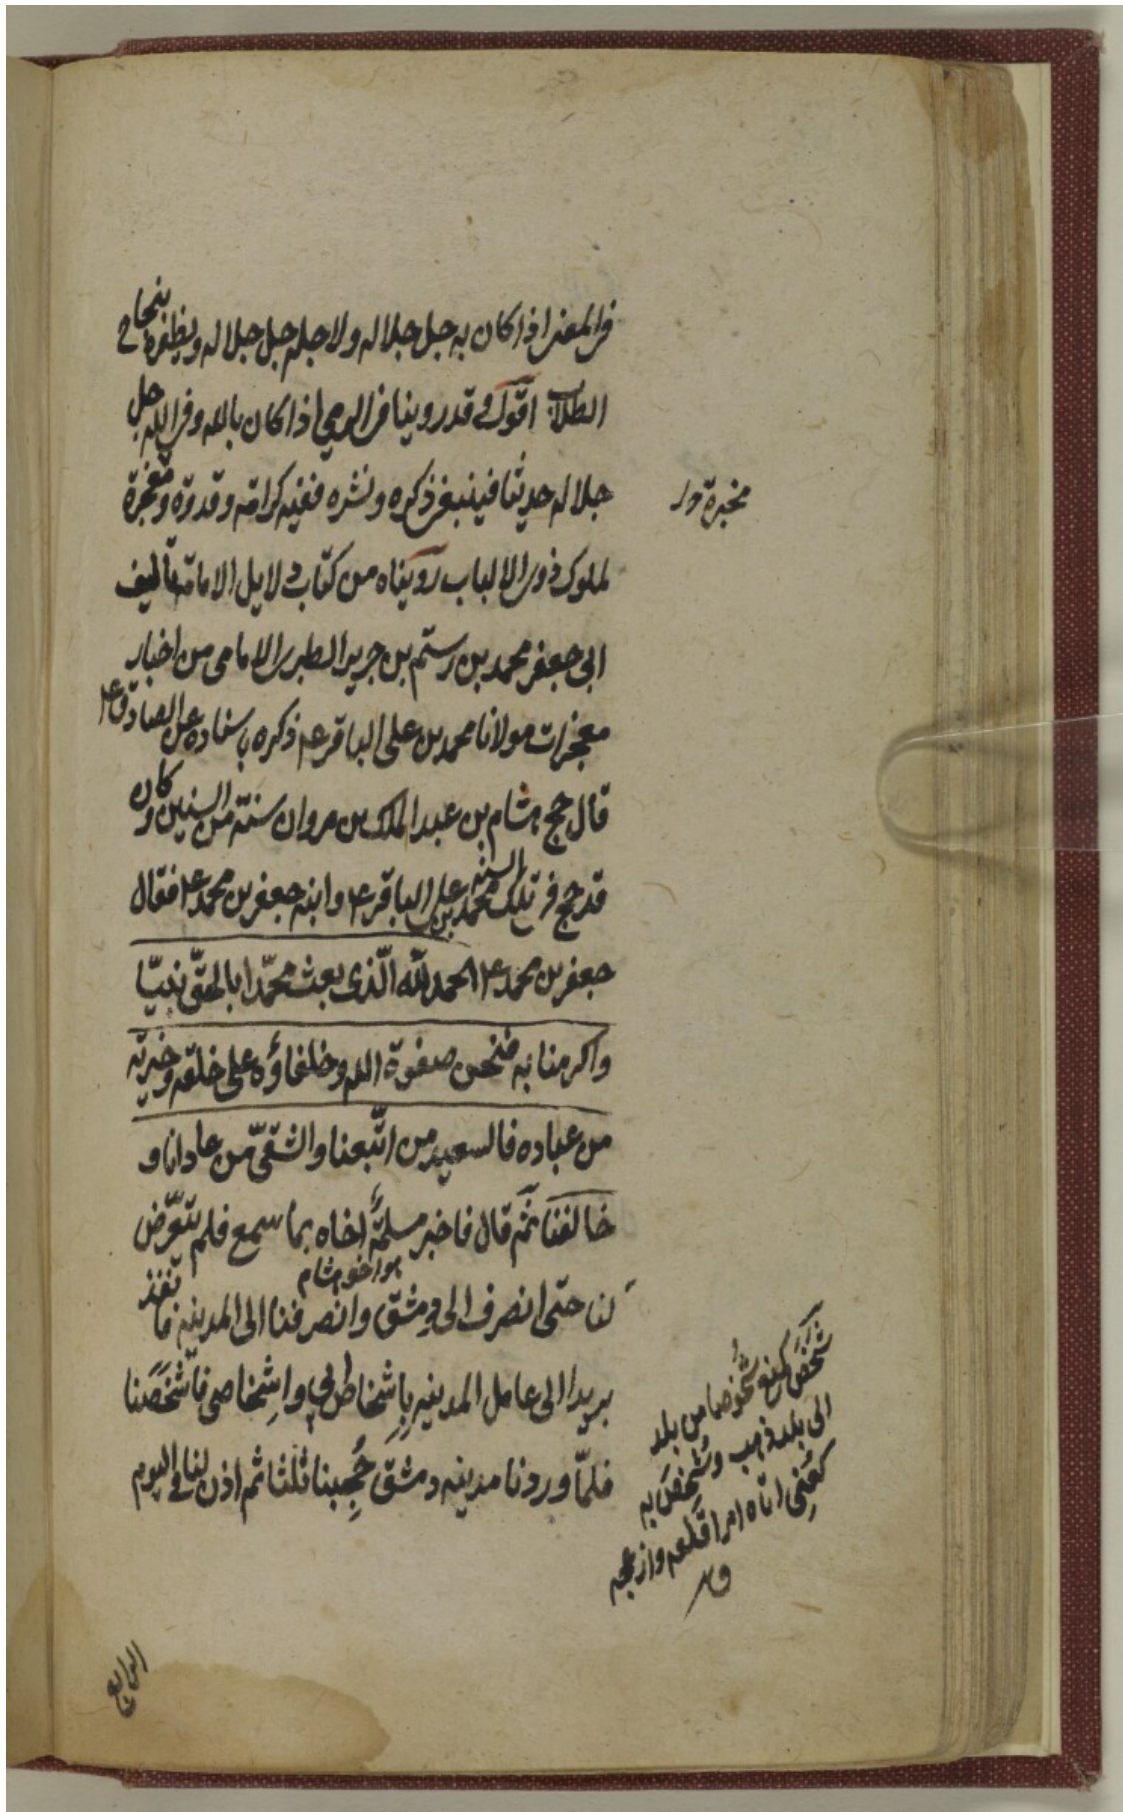 فى المعنى اذا كان به جل جلاله ولاجله جل جلاله ويظفره بنجاح
الطلاب اقول وقد روينا فى الرمى اذا كان بالله وفى الله جل
جلاله حديثا فينبغى ذكره ونشره ففيه كرامة وقدوة ومعجزة
لملوك ذوى الالباب رويناه من كتاب دلايل الامامة تأليف
ابى جعفر محمد بن رستم بن جرير الطبرى الامامى من اخبار
معجزات مولانا محمد بن على الباقر ع ذكره باسناده عن الصادق ع
قال حج هشام بن عبد الملك بن مروان سنة من السنين وكان
قد حج فى تلك السنة محمد بن على الباقر ع وابنه جعفر بن محمد ع فقال
جعفر بن محمد ع الحمد لله الّذى بعث محمّدا بالحقّ نبيّا
واكرمنا به فنحن صفوة الله وخلفاؤه على خلقه وخيرته
من عباده فالسعيد من اتّبعنا والشقىّ من عادانا و
خالفنا ثم قال فاخبر مسلمة اخاه بما سمع فلم يتعرّض
هو اخو هشام
لنا حتى انصرف الى دمشق وانصرفنا الى المدينه فانفذ
بريدا الى عامل المدينه بإشخاص ابى واشخاصى فأشخَصَنا
فلمّا وردنا مدينه دمشق حُجِبنا ثلثا ثم اذن لنا فى اليوم
الرابع
مخبرة خ ل
شَخَصَ كمنع شُخُوصا من بلد
الى بلد ذهب وشُخِصَ به
كعُنِى اتاه امر اقلقه وازعجه
ق